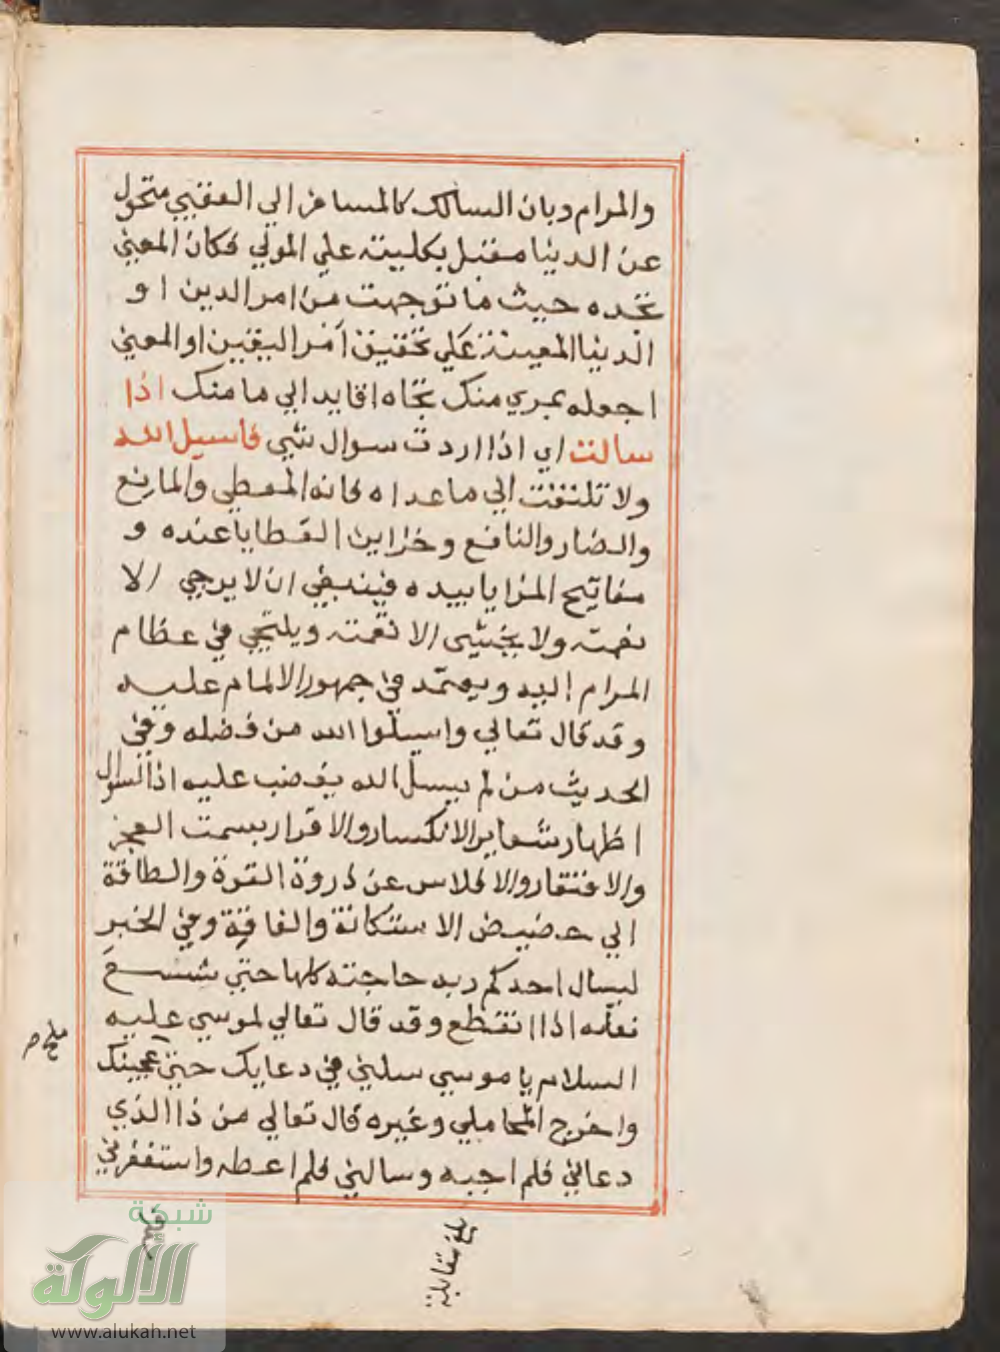 والمرام وبان السالك كالمسافر الي العقبي متحول
عن الدنيا مقبل بكليته علي المولي فكان المعني
تجده حيث ما توجهت من امر الدين او
الدنيا المعينة علي تحقيق امر اليقين او المعني
اجعله بمري منك تجاه اقايد الي ما منك اذا
سالت اي اذا اردت سوال شي فاسيل الله
ولا تلتفت الي ما عداه فانه المعطي والمانع
والضار والنافع وخزاين العطايا عنده و
مفاتيح المزايا بيده فينبغي ان لا يرجي الا
نعمته ولا يخشي الا نقمته ويلتجي في عظام
المرام اليه ويعتمد في جمهور الالمام عليه
وقد قال تعالي واسيلوا الله من فضله وفي
الحديث من لم يسل الله يغضب عليه اذ السوال
اظهار شعاير الانكسار والاقرار بسمت العجز
والافتقار والافلاس عن ذروة القوة والطاقة
الي حضيض الاستكانة والفاقة وفي الخبر
ليسال احدكم ربه حاجته كلها حتي شسع
نعله اذا انقطع وقد قال تعالي لموسي عليه
السلام يا موسي سلني في دعايك حتي عجينك
واخرج المحاملي وغيره قال تعالي من ذا الذي
دعاني فلم اجبه وسالني فلم اعطه واستغفرني
ملح ص
بلغ مقابلة
شبكة
الألوكة
www.alukah.net